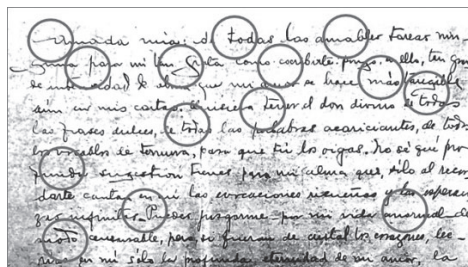 Amada mia: de todas las amables tareas nin-
guna para mi tan grata como escribirte. pongo en ello, tan gran
de intensidad que mi amor se hace más tangible
aún en mis cartas. Quisiera tener el don divino de todas
las frases dulces, de todas las palabras acariciantes, de todos
los vocablos de ternura, para que tú los oigas. No sé que pro
funda sugestion tienes para mi alma que, sólo al recor
darte cantan en mi las evocaciones risueñas y las esperan
zas infinitas. Puedes juzgarme por mi vida anormal de
modo censurable, pero, si fueran de cristal los corazones, lee-
rias en mi solo la profunda eternidad de mi amor, la